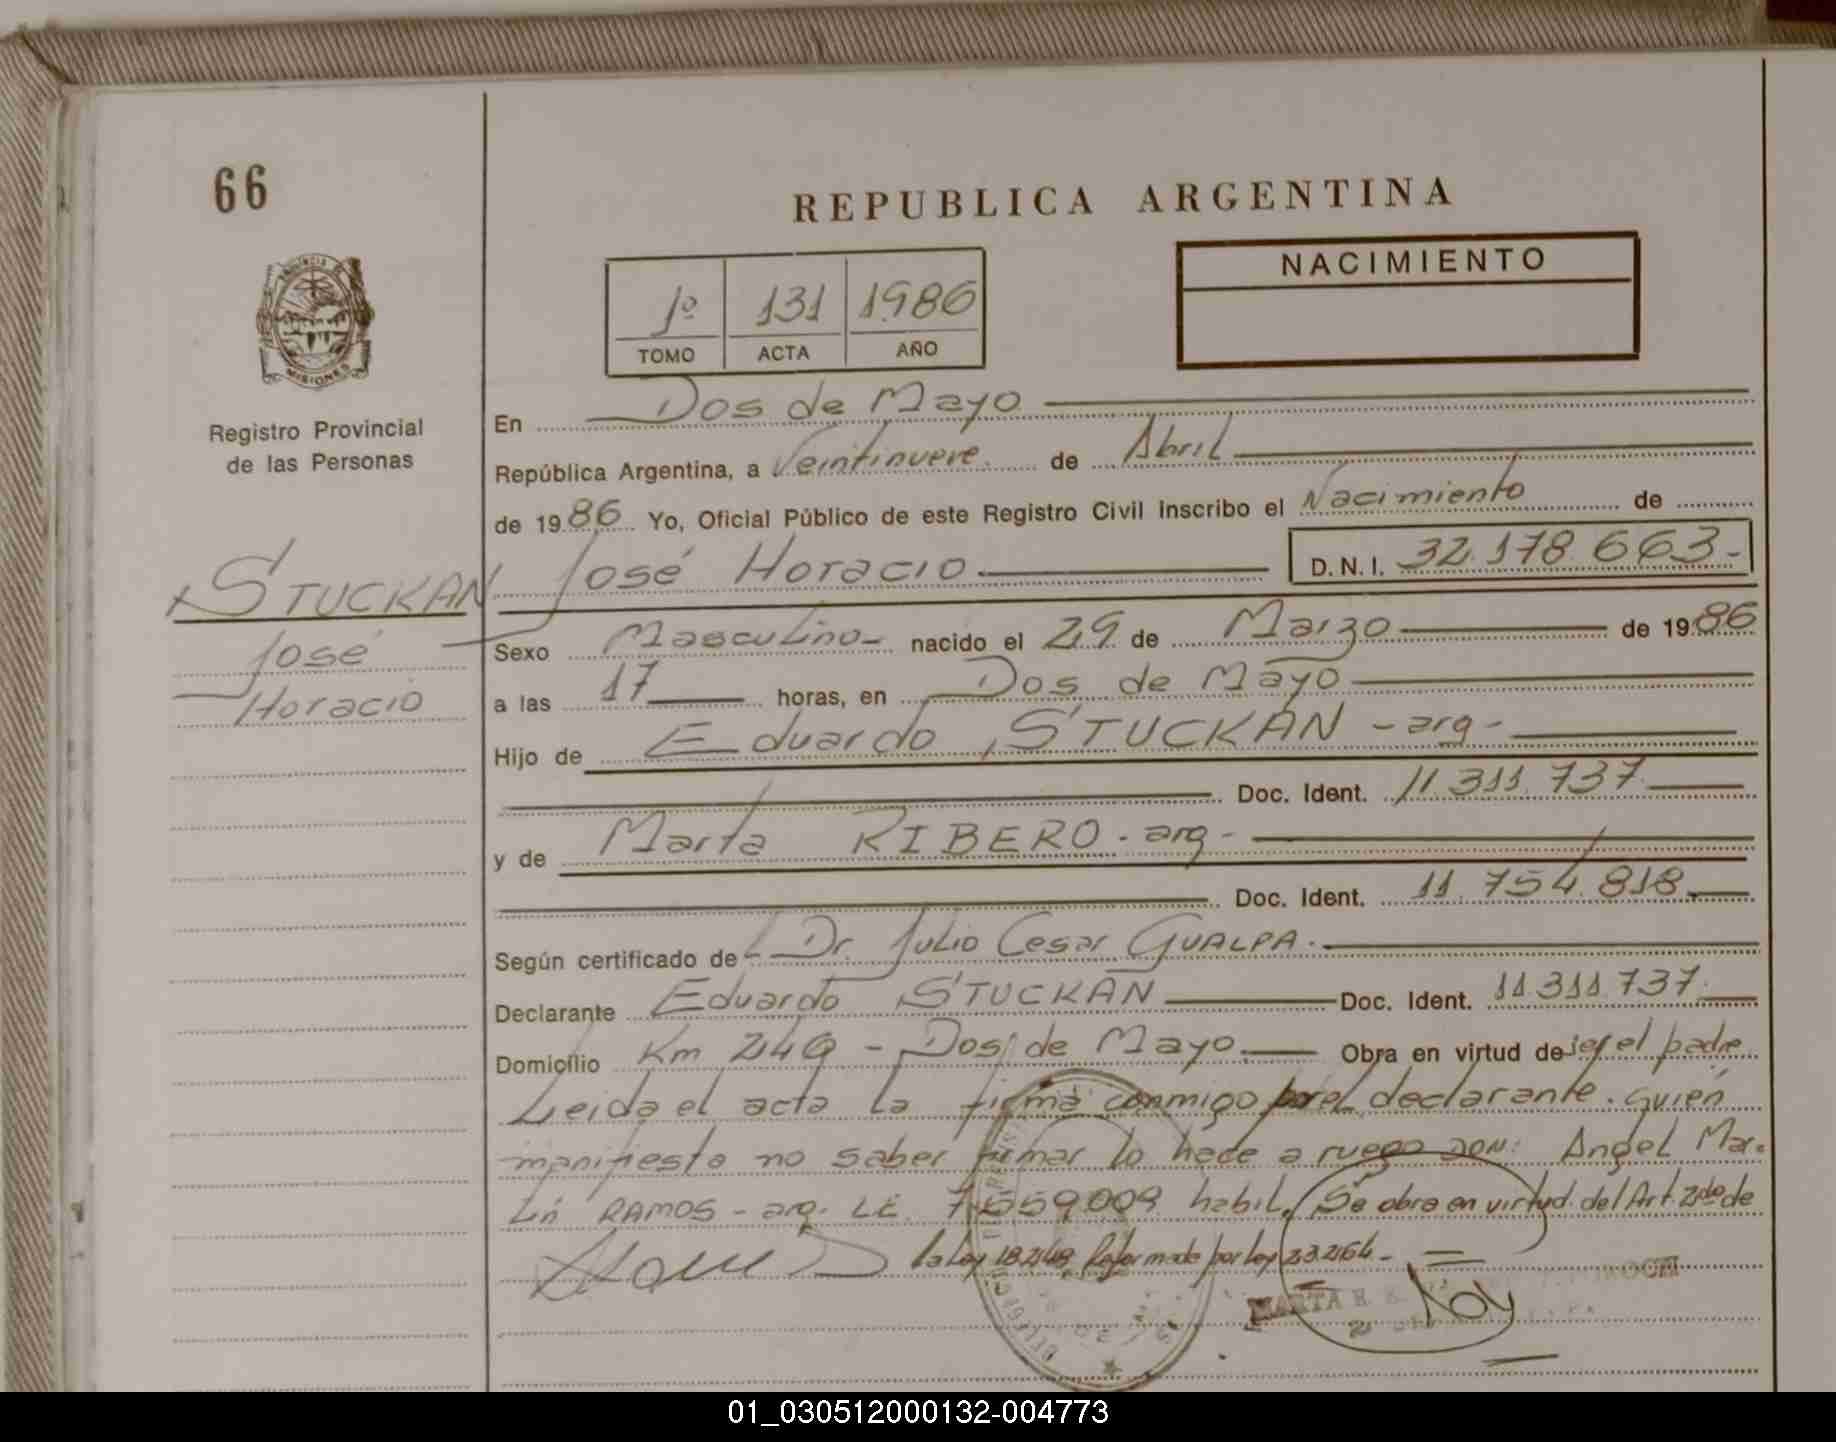 66
REPUBLICA ARGENTINA
NACIMIENTO
1º 131 1986
TOMO ACTA AÑO
MISIONES
Registro Provincial
de las Personas
STUCKAN
José
Horacio
En Dos de Mayo
República Argentina, a Veintinueve de Abril
de 1986 Yo, Oficial Público de este Registro Civil Inscribo el Nacimiento de
José Horacio D.N.I. 32.178.663-
Sexo Masculino- nacido el 29 de Marzo de 1986
a las 17 horas, en Dos de Mayo
Hijo de Eduardo STUCKAN - arg -
Doc. Ident. 11.311.737
y de Marta RIBERO - arg -
Doc. Ident. 11.754.818
Según certificado de Dr. Julio Cesar GUALPA.
Declarante Eduardo STUCKAN Doc. Ident. 11.311.737
Domicilio Km 249 - Dos de Mayo. Obra en virtud de ser el padre
Leida el acta la firma conmigo el declarante. Quién
manifiesta no saber firmar lo hace a ruego don: Angel Mar-
tín RAMOS - arg. LE. 7.559.009 habil. Se obra en virtud del Art. 2do de
la Ley 18.248 Reformada por Ley 23.264 -
MARTA
01_030512000132-004773